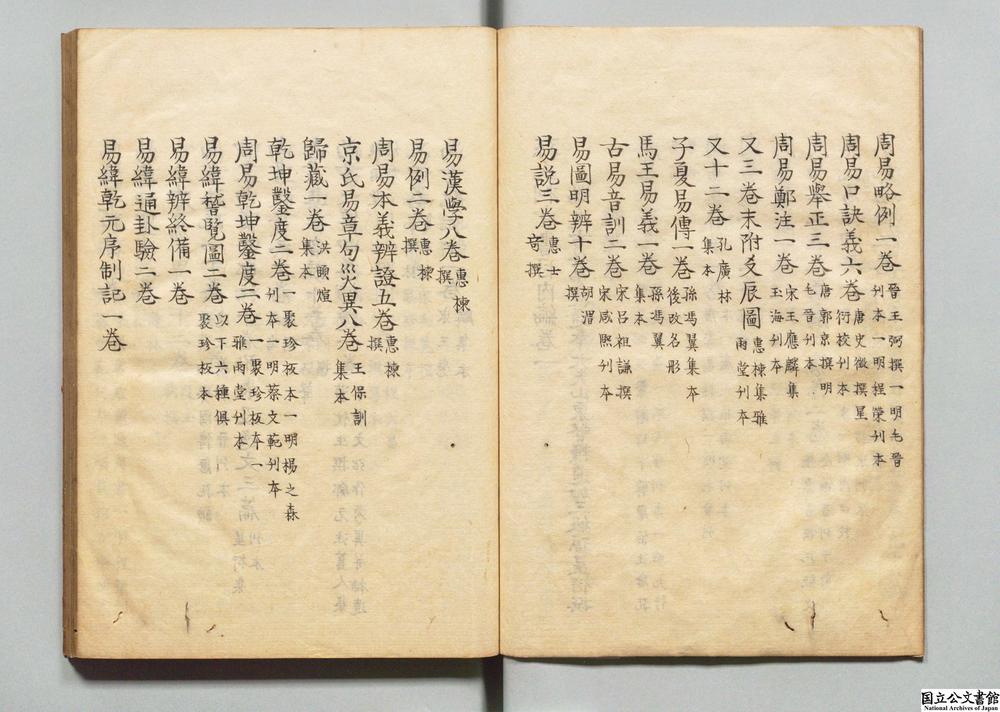 周易略例一卷 晉王弼撰一明毛晉刊本一明程榮刊本
周易口訣義六卷 唐史徵撰星衍校刊本
周易舉正三卷 唐郭京撰明毛晉刊本
周易鄭注一卷 宋王應麟集玉海刊本
又三卷末附爻辰圖 惠棟集雅雨堂刊本
又十二卷 孔廣林集本
子夏易傳一卷 孫馮翼集本後改名形
馬王易義一卷 孫馮翼集本
古易音訓二卷 宋呂祖謙撰宋咸熙刊本
易圖明辨十卷 胡渭撰
易說三卷 惠士奇撰
易漢學八卷 惠棟撰
易例二卷 惠棟撰
周易本義辨證五卷 惠棟撰
京氏易章句災異八卷 王保訓集本
歸藏一卷 洪頤煊集本
乾坤鑿度二卷 一聚珍板本一明楊之森刊本一明蔡文範刊本
周易乾坤鑿度二卷 一聚珍板本一雅雨堂刊本
易緯稽覽圖二卷 以下六種俱聚珍板本
易緯辨終備一卷
易緯通卦驗二卷
易緯乾元序制記一卷
国立公文書館
National Archives of Japan